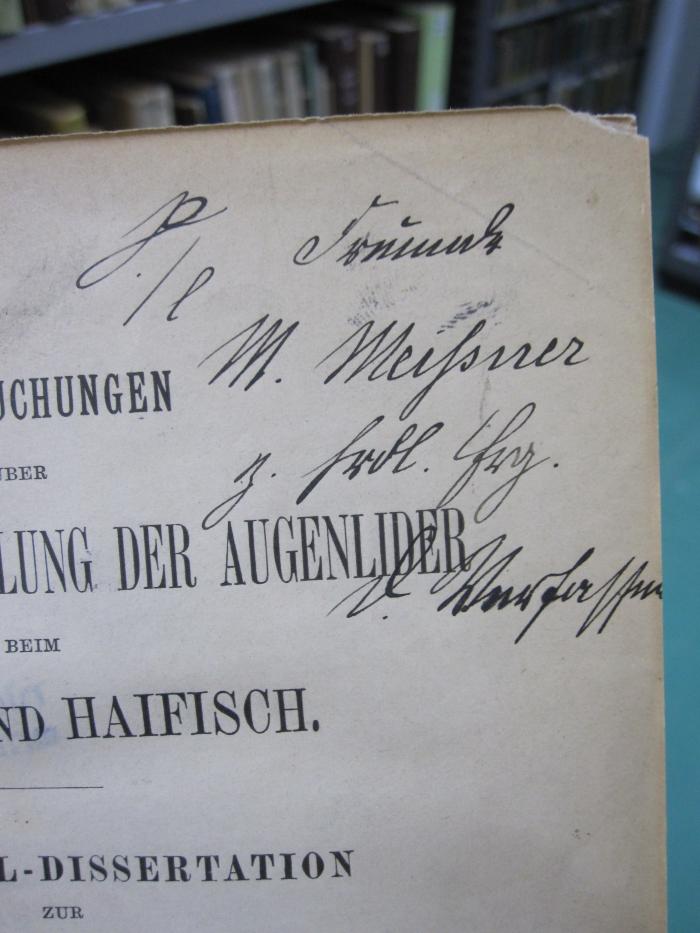 S./l Freunde
M. Meißner
UCHUNGEN
z. frdl. Erg.
ÜBER
LUNG DER AUGENLIDER
d. Verfasser
BEIM
ND HAIFISCH.
L-DISSERTATION
ZUR